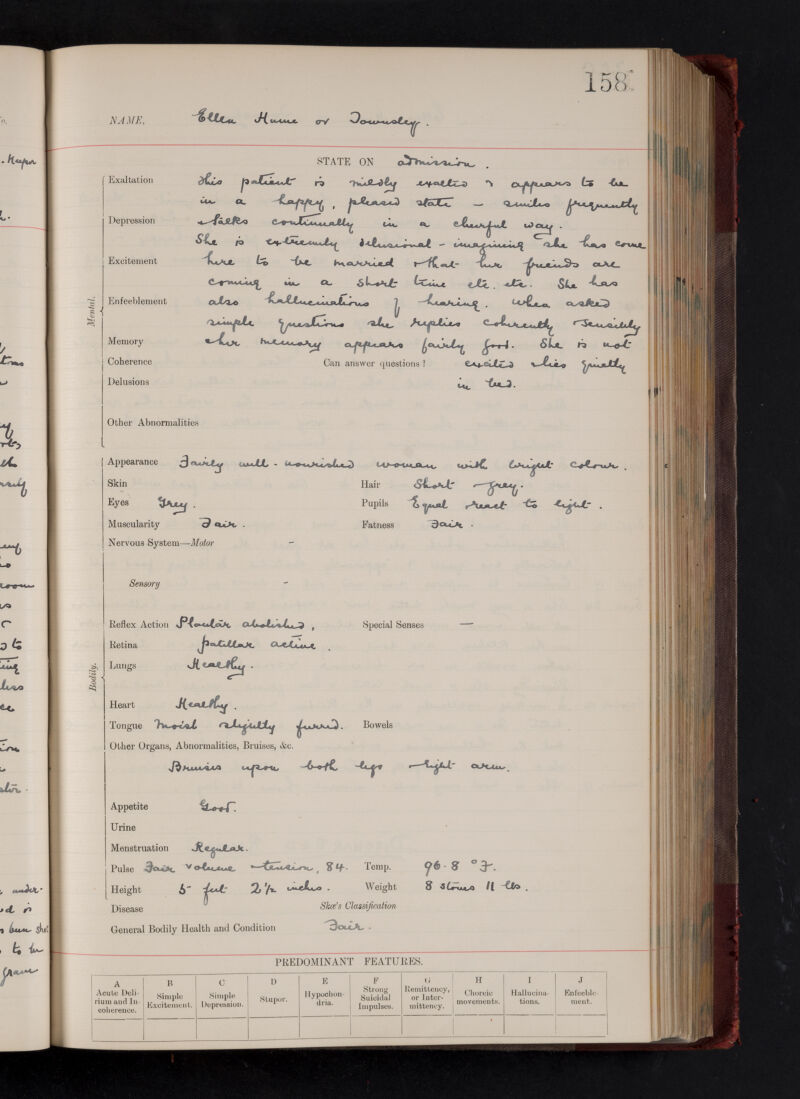 158
NAME, Ellen Hume or Townsley.
STATE ON admission.
Mental.
Exaltation This patient is mildly exalted & appears to be
in a happy, pleased state – smiles frequently
Depression & talks continually in a cheerful way.
She is extremely delusional - imagining she has come
Excitement here to be married & that her friends are
coming in a short time etc. etc. She has
Enfeeblement also hallucinations of hearing. When asked
simple questions she replies coherently & sensibly
Memory & her memory appears fairly good. She is not
Coherence Can answer questions? excited & lies quietly
Delusions in bed.
Other Abnormalities
Bodily.
Appearance Fairly well-nourished woman with bright colour.
Skin Hair Short - grey.
Eyes Grey. Pupils Equal & react to light.
Muscularity Fair. Fatness Fair.
Nervous System—Motor –
Sensory –
Reflex Action Plantar abolished, Special Senses —
Retina patellar active.
Lungs Healthy.
Heart Healthy.
Tongue Moist & slightly furred. Bowels
Other Organs, Abnormalities, Bruises, &c.
Bruises upon both legs arm.
Appetite Good.
Urine
Menstruation Regular.
Pulse Fair volume & tension, 84. Temp. 96.8 °F.
Height 5 feet 2½ inches. Weight 8 stones 11 lbs.
Disease Skae's Classification
General Bodily Health and Condition Fair.
PREDOMINANT FEATURES.
A B C D E F G H I J
Acute Delirium and Incoherence. Simple Excitement. Simple Depression. Stupor. Hypochondria. Strong Suicidal Impulses. Remittency, or Intermittency. Choreic movements. Hallucinations. Enfeeblement.